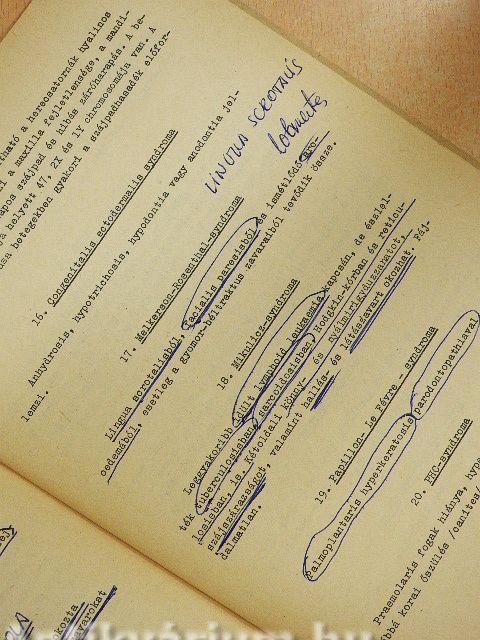 tható a herecsatornák hyalinos
i a maxilla fejletlensége, a mandi-
apos szájpad és hibás záróharapás. A be-
ja helyett 47, 2X és 1Y chromosomája van. A
usa betegekben gyakori a szájpadhasadék előfor-
16. Congenitalis ectodermalis syndroma
Anhydrosis, hypotrichosis, hypodontia vagy anodontia jel-
lemzi.
LINGUA SCROTALIS
17. Melkerson-Rosenthal-syndroma
Lingua scrotalisból, facialis paresisből és ismétlődő oro-
oedemából, esetleg a gyomor-béltraktus zavaraiból tevődik össze.
18. Mikulicz-syndroma
Leggyakoribb idült lymphoid leukaemia kapcsán, de észlel-
ték tuberculosisban, sarcoidosisban, Hodgkin-kórban és reticu-
losisban, is. Kétoldali könny- és nyálmirigyduzzanatot,
szájszárazságot, valamint hallás- és látászavart okozhat. Fáj-
dalmatlan.
19. Papillon- Le Févre - syndroma
Palmoplantaris hyperkeratosis parodontopathiával
20. PHC-syndroma
Praemolaris fogak hiánya, hype
bbá korai őszülés /canites/
okozta